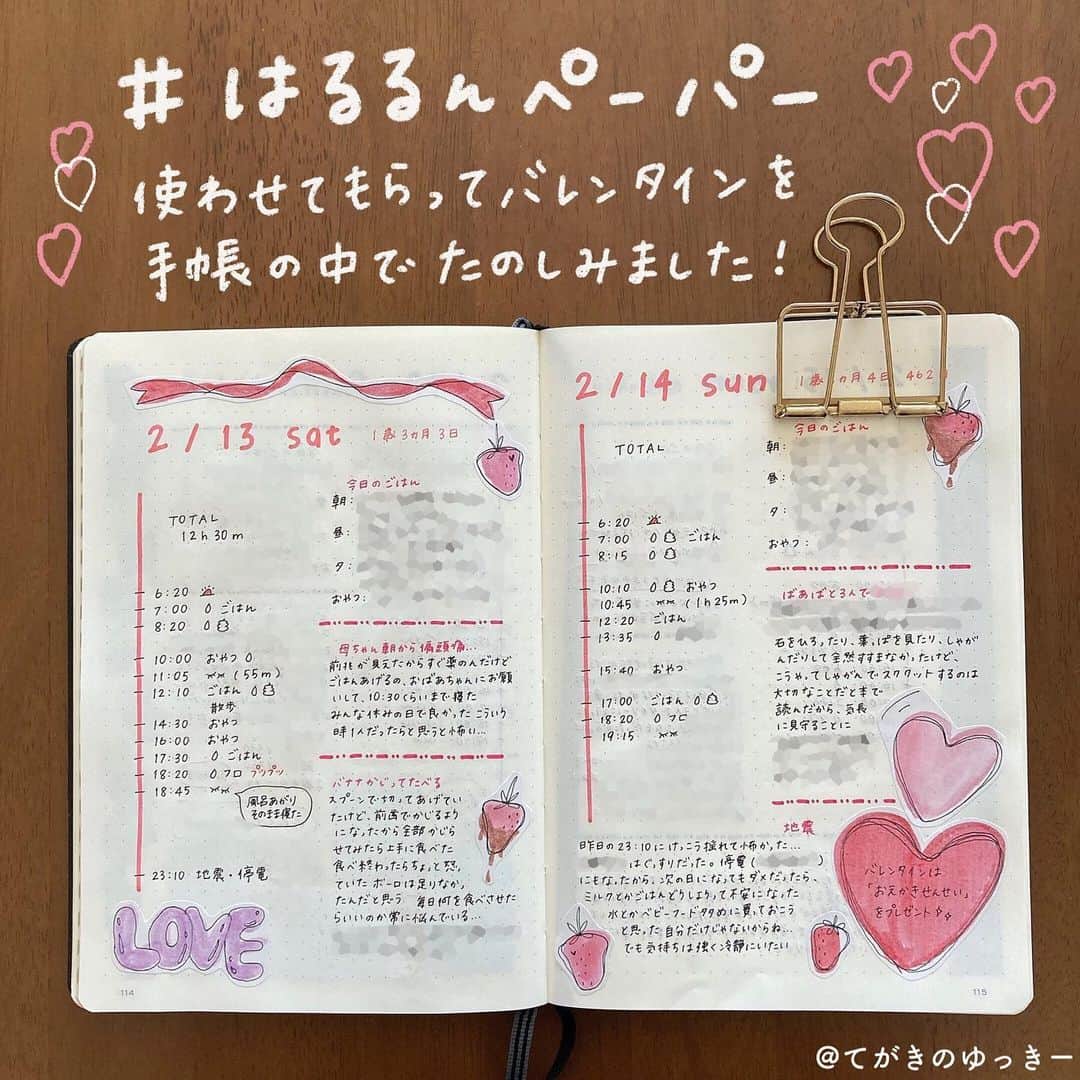 #はるるんペーパー
使わせてもらってバレンタインを
手帳の中でたのしみました!
2/13 sat 1歳3カ月3日
今日のごはん
朝:
昼:
夕:
おやつ:
TOTAL
12h30m
6:20
7:00 0 ごはん
8:20 0
10:00 おやつ 0
11:05 (55m)
12:10 ごはん 0
散歩
14:30 おやつ
16:00 おやつ
17:30 0 ごはん
18:20 0 フロ プリプリ
18:45
風呂あがり
そのまま寝た
23:10 地震・停電
LOVE
母ちゃん朝から偏頭痛…
前兆が見えたからすぐ薬のんだけど
ごはんあげるの、おばあちゃんにお願
いして、10:30ぐらいまで寝た
みんな休みの日で良かった こういう
時1人だったらと思うと怖い…
バナナかじってたべる
スプーンで切ってあげてい
たけど、前歯でかじるよう
になったから全部かじら
せてみたら上手に食べた
食べ終わったらちょっと怒っ
ていた ボーロは足りなか
たんだと思う 毎日何を食べさせた
らいいのか常に悩んでいる…
114
2/14 sun 1歳3カ月4日 462
今日のごはん
朝:
昼:
夕:
おやつ:
TOTAL
6:20
7:00 0 ごはん
8:15 0
10:10 0 おやつ
10:45 (1h25m)
12:20 ごはん
13:35 0
15:40 おやつ
17:00 ごはん 0
18:20 0 フロ
19:15
ばあばと3人で
石をひろったり、葉っぱを見たり、しゃが
んだりして全然すすまなかったけど、
こうやってしゃがんでスクワットするのは
大切なことだと本で
読んだから、気長
に見守ることに
地震
昨日の23:10にけっこう揺れて怖かった…
はぐっすりだった。停電(
)
にもなったから、次の日になってもダメだったら、
ミルクとかごはんどうしようって不安になった
水とかベビーフードタタめに買っておこう
と思った 自分だけじゃないからね…
でも気持ちは強く冷静にいたい
バレンタインは
「おえかきせんせい」
をプレゼント
115
@てがきのゆっきー